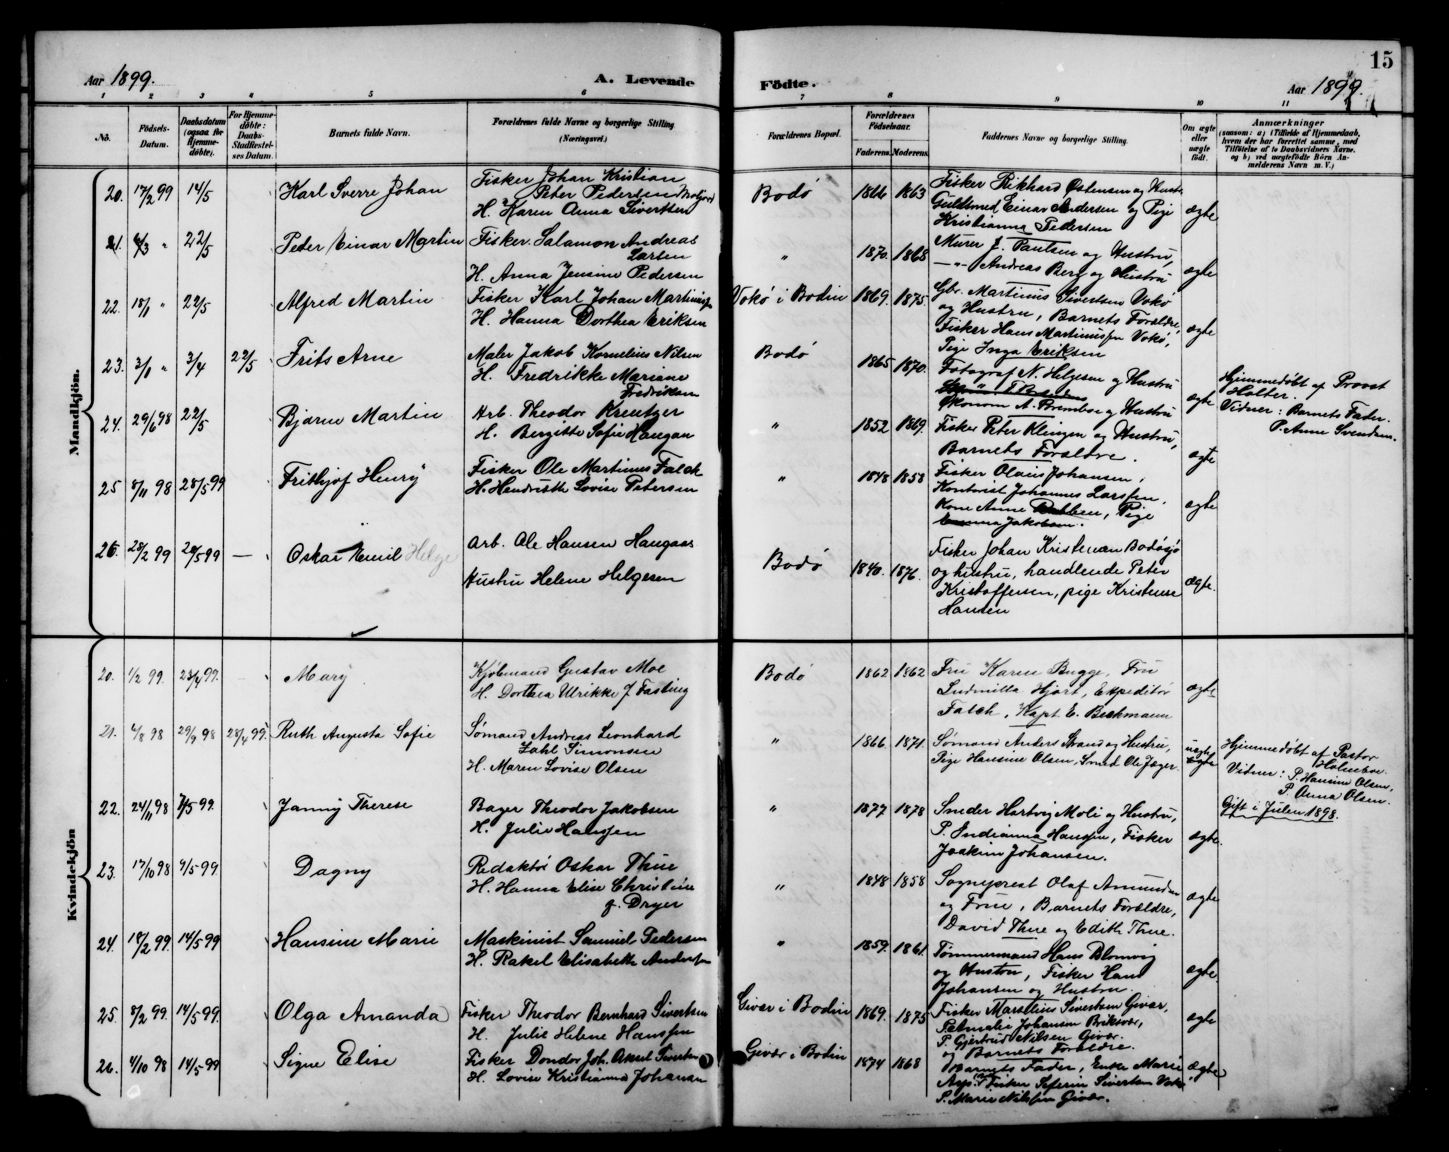 Aar 1899.
A. Levende
1 2 3 4 5 6
No.
Födsels-
Datum.
Daabsdatum
(ogsaa for
Hjemme-
döbte).
For Hjemme-
döbte:
Daabs-
Stadfæstel-
ses Datum.
Barnets fulde Navn.
Forældrenes fulde Navne og borgerlige Stilling
(Næringsvei.)
Mandkjön.
20. 17/2 99 14/5 Karl Sverre Johan Fisker Johan Kristian
Peter Pedersen
H. Karen Anna Sivertsen
21. " 22/5 Peder Einar Martin Fisker Salamon Andreas
Larsen
H. Anna Jensine Pedersen
22. 18/1 " 22/5 Alfred Martin Fisker Karl Johan
H. Hanna Dorthea Eriksen
23. 3/1 " 3/4 22/5 Frits Arne Maler Jakob Kornelius Nilsen
H. Fredrikke Mariane
Fredriksen
24. 29/6 98 22/5 Bjarne Martin Arb. Theodor Kreutzer
H. Bergitte Sofie Haugan
25 8/11 98 28/5 99 Frithjof Henry Fisker Ole Martinus Falch
H. Lovise Petersen
26. 28/2 99 28/5 99 — Oskar Emil Helge Arb. Ole Hansen Haugaas
Hustru Helene Helgesen
Kvindekjön
20. 1/2 99. 23/4 99. Mary Kjøbmand Gustav Moe
H. Dorthea Ulrikke J. Fasting
21. 4/8 98 29/9 98 23/4 99. Ruth Augusta Sofie Sømand Andreas Leonhard
Zahl Simonsen
H. Maren Lovise Olsen
22. 24/11 98 7/5 99 Janny Therese Bager Theodor Jakobsen
H. Julie Hanssen
23. 17/10 98 9/5 99 Dagny Redaktør Oskar Thue
H. Hanna Elise Christine
f. Dryer
24. 18/2 99 14/5 99 Hansine Marie Maskinist Samuel Pedersen
H. Rakel Elisabeth Andersen
25. 8/2 99 14/5 99. Olga Amanda Fisker Theodor Bernhard Sivertsen
H. Julie Helene Hanssen
26. 4/10 98 14/5 99 Signe Elise Fisker Joh. Aksel Sivertsen
H. Lovise Kristianna Johansen
15
Födte.
Aar 1899.
7 8 9 10 11
Forældrenes Bopæl.
Forældrenes
Födselsaar.
Faderens. Moderens.
Faddernes Navne og borgerlige Stilling.
Om ægte
eller
uægte
födt.
Anmærkninger
(saasom: a) i Tilfælde af Hjemmedaab,
hvem der har forrettet samme, med
Tilföielse af to Daabsvidners Navne.
og b) ved uægtefödte Börn An-
melderens Navn m. V.)
Bodø 1866 1863 Fisker Rikhard Østensen og Hustr.
Guldsmed Einar Andersen og Pige
Kristianna Pedersen ægte
" 1870. 1868 Murer J. Paulsen og Hustru,
—"— Andreas Berg og Hustru ægte
Vokø i Bodin 1869. 1875 Gbr. Martinus Sivertsen Vokø
og Hustru, Barnets Forældre,
Fisker Hans Martinussen Vokø,
Pige Inga Eriksen ægte
Bodø 1865 1870. Fotograf N. Helgesen og Hustru
Økonom A. og Hustru ægte
Hjemmedøbt af Provst
Holter.
Vidner: Barnets Fader.
P. Anne Svendsen.
" 1852 1869. Fisker Peter Klingen og Hustru,
Barnets Forældre. ægte
" 1848 1858 Fisker Olaus Johansen,
Kontorist Johannes Larssen,
Kone Anne , Pige
Jakobsen. ægte
Bodø 1840. 1876. Fisker Johan Kristensen Bodøsjø
og hustru, handlende Peter
Kristoffersen, pige Kristense
Hansen ægte.
Bodø 1862 1862 Fru Karen Bugge, Fru
Ludmilla Hjort, Expeditør
Falch, Kapt. E. Beckmann ægte
" 1866 1871. Sømand Anders Strand og Hustru,
Pige Hansine Olsen, Smed Ole Jæger. uægte
ægte
Hjemmedøbt af Pastor
Holmboe.
Vidner: P. Hansine Olsen,
P. Anna Olsen.
Gift i Julen 1898.
" 1877 1878 Snedker Hartvig Moli og Hustru,
P. Indianna Hanssen, Fisker
Joakim Johansen. ægte.
" 1848 1858 Sogneprest Olaf Amundsen
og Frue, Barnets Forældre,
David Thue og Edith Thue. ægte
" 1859. 1861. Tømmermand Hans Blomvig
og Hustru, Fisker Hans
Johansen og Hustru. ægte
Givær i Bodin 1869. 1875 Fisker Sivertsen Givær,
Petmalie Johansen Brikvær,
P. Gjertrud Nilsen Givær.
og Barnets Forældre. ægte
Givær i Bodin 1874 1868 Barnets Fader, Enke Marie
Fisker Seferin Sivertsen Vokø
P. Marie Nilssen Givær. ægte